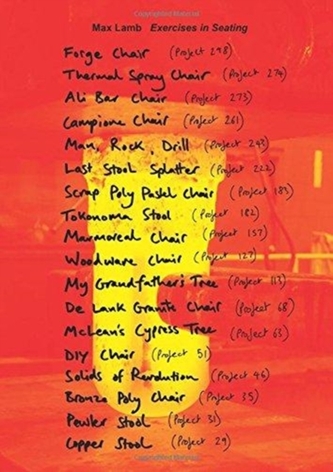 Copyrighted Material
Max Lamb Exercises in Seating
Forge Chair (Project 298)
Thermal Spray Chair (Project 274)
Ali Bar Chair (Project 273)
Campione Chair (Project 261)
Man, Rock, Drill (Project 243)
Last Stool Splatter (Project 222)
Scrap Poly Pastel Chair (Project 183)
Tokonoma Stool (Project 182)
Marmoreal Chair (Project 157)
Woodware Chair (Project 127)
My Grandfather's Tree (Project 113)
De Lank Granite Chair (Project 68)
McLean's Cypress Tree (Project 63)
DIY Chair (Project 51)
Solids of Revolution (Project 46)
Bronze Poly Chair (Project 35)
Pewter Stool (Project 31)
Copper Stool (Project 29)
Copyrighted Material